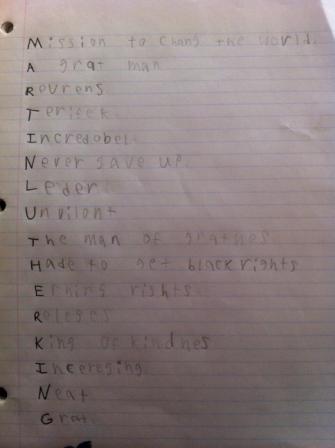 Mission to chang the world.
A grat man
Reurens
Terifek
Incredobel
Never gave up.
Leder
Unvilont
The man of gratnes
Hade to get black rights
Erning rights
Releges
King of kindnes
Incereging
Neat
Grat